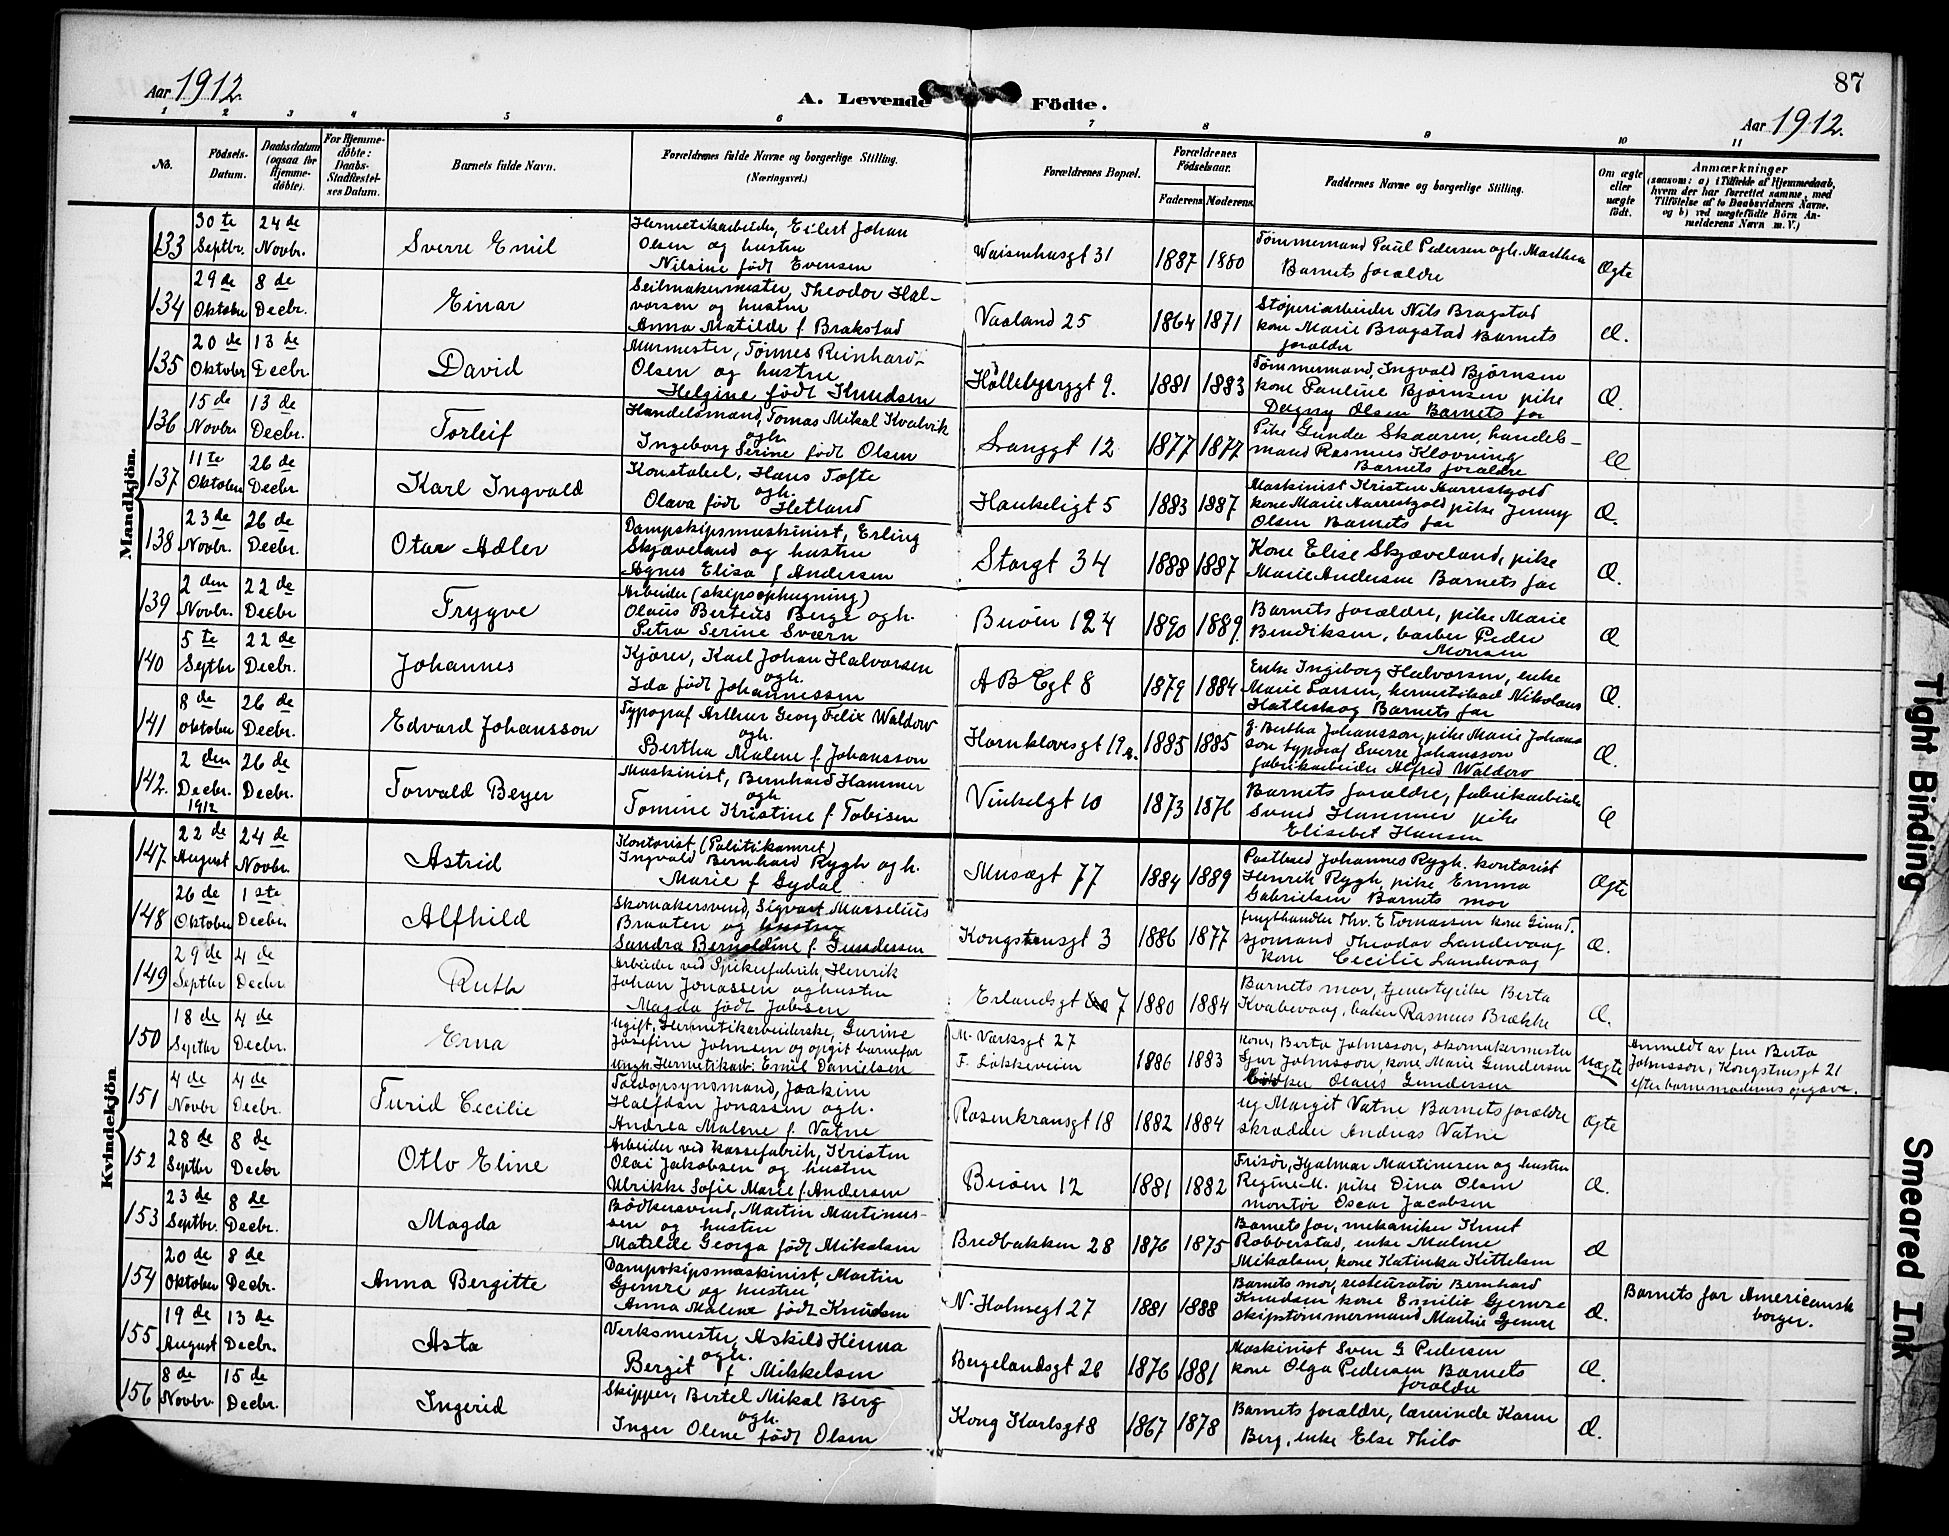 87
Aar 1912.
A. Levende Födte.
Aar 1912.
1 2 3 4 5 6 7 8 9 10 11
No.
Födsels-
Datum.
Daabsdatum
(ogsaa for
Hjemme-
döbte).
For Hjemme-
döbte:
Daabs-
Stadfæstel-
ses Datum.
Barnets fulde Navn.
Forældrenes fulde Navne og borgerlige Stilling.
(Næringsvei.)
Forældrenes Bopæl.
Forældrenes
Födselsaar.
Faderens Moderens.
Faddernes Navne og borgerlige Stilling.
Om ægte
eller
uægte
födt.
Anmærkninger
(saasom: a) i Tilfælde af Hjemmedaab,
hvem der har forrettet samme, med
Tilföielse af to Daabsvidners Navne.
og b) ved uægtefödte Börn An-
melderens Navn m. V.)
Mandkjön.
133 30te Septbr. 24de Novbr.
Sverre Emil
Hermetikarbeider, Eilert Johan
Olsen og hustru
Nilsine født Evensen
Waisenhusgt 31
1887 1880
Tømmermand Paul Pedersen ogh. Marthea
Barnets forældre
Ægte
134 29de Oktober 8de Decbr.
Einar
Seilmakermester, Theodor Hal-
vorsen og hustru
Anna Matilde f Brakstad
Vaaland 25
1864 1871
Støperiarbeider Nils Bragstad
kone Marie Bragstad Barnets
forældre
Æ.
135 20de Oktobr 13de Decbr.
David
Murmester, Tønnes Reinhard
Olsen og hustru
Helgine født Knudsen
9.
1881 1883
Tømmermand, Ingvald Bjørnsen
kone Pauline Bjørnsen pike
Dagny Olsen Barnets far
Æ.
136 15de Novbr 13de Decbr.
Torleif
Handelsmand, Tomas Mikal Kvalvik
ogh.
Ingeborg Serine født Olsen
Langgt 12
1877 1877
Pike Gunda Skaaren, handels-
mand Rasmus Klovning
Barnets forældre
Æ
137 11te Oktober 26de Decbr
Karl Ingvald
Konstabel, Hans Tofte
ogh.
Olava født Hetland
Haukeligt 5
1883 1887
Maskinist Kristen Aarrestgold
kone Marie Aarrestgold pike Jenny
Olsen Barnets far
Æ.
138 23de Novbr. 26de Decbr.
Otar Adler
Dampskipsmaskinist, Erling
Skjæveland og hustru
Agnes Elisa f Andersen
Storgt 34
1888 1887
Kone Elise Skjæveland, pike
Marie Andersen Barnets far
Æ.
139 2den Novbr. 22de Decbr
Trygve
Arbeider (skipsophugning)
Olaus Berteus Berge ogh.
Petra Serine Sværn
Buøen 124
1890 1889.
Barnets forældre, pike Marie
Bendiksen, barber Peder
Monsen
Æ
140 5te Septbr 22de Decbr.
Johannes
Kjører, Karl Johan Halvorsen
ogh.
Ida født Johannessen
A B Cgt 8
1879 1884
Enke Ingeborg Halvorsen, enke
Marie Larsen, hermetikarb Nikolaus
Hatleskog Barnets far
Æ.
141 8de Oktober 26de Decbr.
Edvard Johansson
Typograf Arthur Georg Felix Waldow
ogh.
Bertha Malene f Johansson
Hornklovesgt 19a.
1885 1885
g. Bertha Johansson, pike Marie Johans
son typograf Sverre Johansson
fabrikarbeider Alfred Waldow
Æ.
142. 2den Decbr. 1912 26de Decbr.
Torvald Beyer
Maskinist, Bernhard Hammer
ogh
Tomine Kristine f Tobisen
Vinkelgt 10
1873 1876
Barnets forældre, fabrikarbeider
Svend Hammer pike
Elisebet Hansen
Æ
Kvindekjön
147 22de August 24de Novbr.
Astrid
Kontorist (Politikamret)
Ingvald Bernhard Rygh og h.
Marie f Gydal
Musægt 77
1884 1889
Postbud Johannes Rygh. kontorist
Henrik Rygh, pike Emma
Gabrielsen Barnets mor
Ægte
148 26de Oktober 1ste Decbr.
Alfhild
Skomakersvend, Sigvart Marselius
Braaten og hustru
Sandra Bernoldine f Gundersen
Kongstensgt 3
1886 1877
frugthandler Thv. E Tomassen kone Gina T.
sjømand Theodor Landevaag
kone Cecilie Landevaag
Æ.
149 29de Septbr 4de Decbr
Ruth
Arbeider ved Spikerfabrik, Henrik
Johan Jonassen oghustru
Magda født Jobsen
Erlandsgt 7
1880 1884
Barnets mor, tjenestepike Berta
Kvalevaag, baker Rasmus Brække
Æ.
150 18de Septbr 4de Decbr.
Erna
Ugift, Hermetikarbeiderske, Gurine
Josefine Johnsen og opgit barnefar
ungk. Hermetikarb. Emil Danielsen
M. Varksgt 27
F. Løkkeveien
1886 1883
Kone, Berta Johnsson, skomakermester
Sjur Johnsson, kone Marie Gundersen
Olaus Gundersen
Uægte
Anmeldt av fru Berta
Johnsson, Kongstensgt 21
efter barnemoderens opgave.
151 4de Novbr 4de Decbr.
Turid Cecilie
Toldopsynsmand, Joakim
Halfdan Jonassen ogh.
Andrea Malene f. Vatne
Rosenkransgt 18
1882 1884
Ug Margit Vatne Barnets forældre
skrædder Andreas Vatne
Ægte
152 28de Septbr 8de Decbr
Otlo Eline
Arbeider ved kassefabrik, Kristen
Olai Jakobsen og hustru
Ulrikke Sofie Marie f Andersen
Buøen 12
1881 1882
Frisør, Hjalmar Martinesen og hustru
Regine M. pike Dina Olsen
montør Oscar Jacobsen
Æ.
153 23de Septbr. 8de Decbr.
Magda
Bødkersvend, Martin Martinus-
sen og hustru
Matilde Georga født Mikalsen
Bredbakken 28
1876 1875
Barnets far, mekaniker Knut
Robberstad, enke Malene
Mikalsen, kone Katinka Kittelsen
Æ
154 20de Oktober 8de Decbr.
Anna Bergitte
Dampskipsmaskinist, Martin
Gjemre og hustru
Anna Malene født Knudsen
N. Holmegt 27
1881 1888
Barnets mor, restauratør Bernhard
Knudsen kone Emilie Gjemre
skipstømmermand Martin Gjemre
Æ.
Barnets far Americansk
borger.
155 19de August 13de Decbr.
Asta
Verksmester, Askild Hinna
ogh.
Bergit f Mikkelsen
Bergelandsgt 26
1876 1881
Maskinist Sven G Pedersen
kone Olga Pedersen Barnets
forældre
Æ.
156 8de Novbr. 15de Decbr.
Ingerid
Skipper, Bertel Mikal Berg
ogh.
Inger Olene født Olsen
Kong Karlsgt 8
1867 1878
Barnets forældre, lærerinde Karen
Berg, enke Else Thilo
Æ.
Tight Binding
Smeared Ink